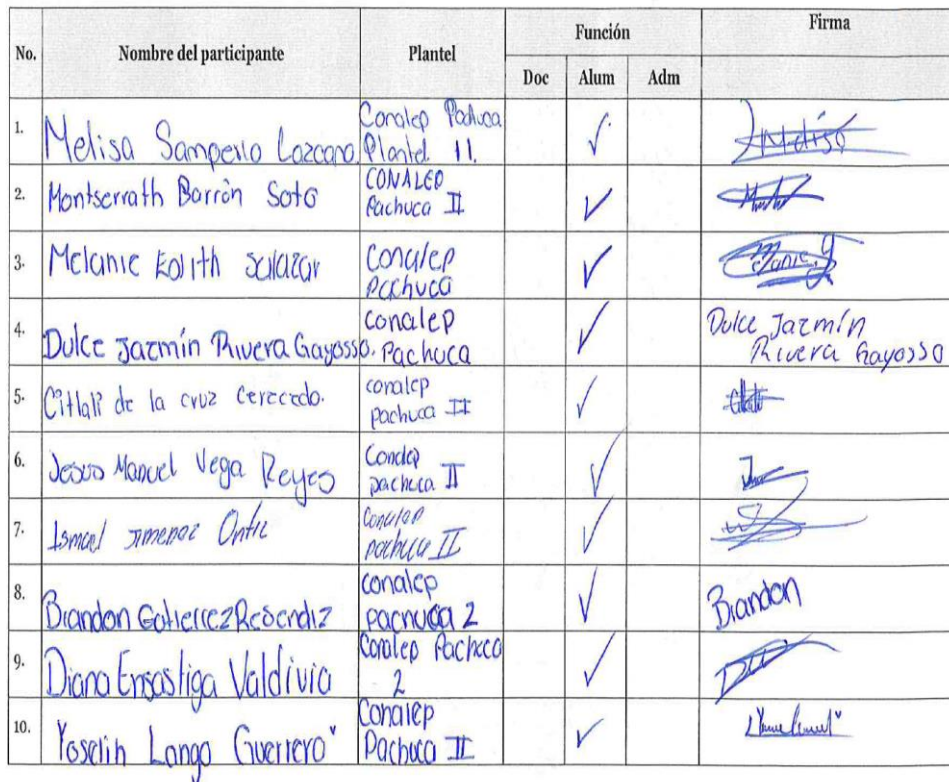 No. Nombre del participante Plantel Función Firma
Doc Alum Adm
1. Melisa Samperio Lozcano. Conalep Pachuca
Plantel 11. Melisa
2. Montserrath Barrón Soto CONALEP
Pachuca II
3. Melanie Edith Salazar Conalep
Pachuca
4. Dulce Jazmín Rivera Gayosso. conalep
Pachuca Dulce Jazmín
Rivera Gayosso
5. Citlali de la cruz Cerecedo. conalep
pachuca II
6. Jesus Manuel Vega Reyes Conalep
pachuca II
7. Ismael Jimenez Ontiz Conalep
pachuca II
8. Brandon Gutierrez Resendiz conalep
pachuca 2 Brandon
9. Diana Ensastiga Valdivia Conalep Pachuca
2
10. Yoselin Longo Guerrero" Conalep
Pachuca II